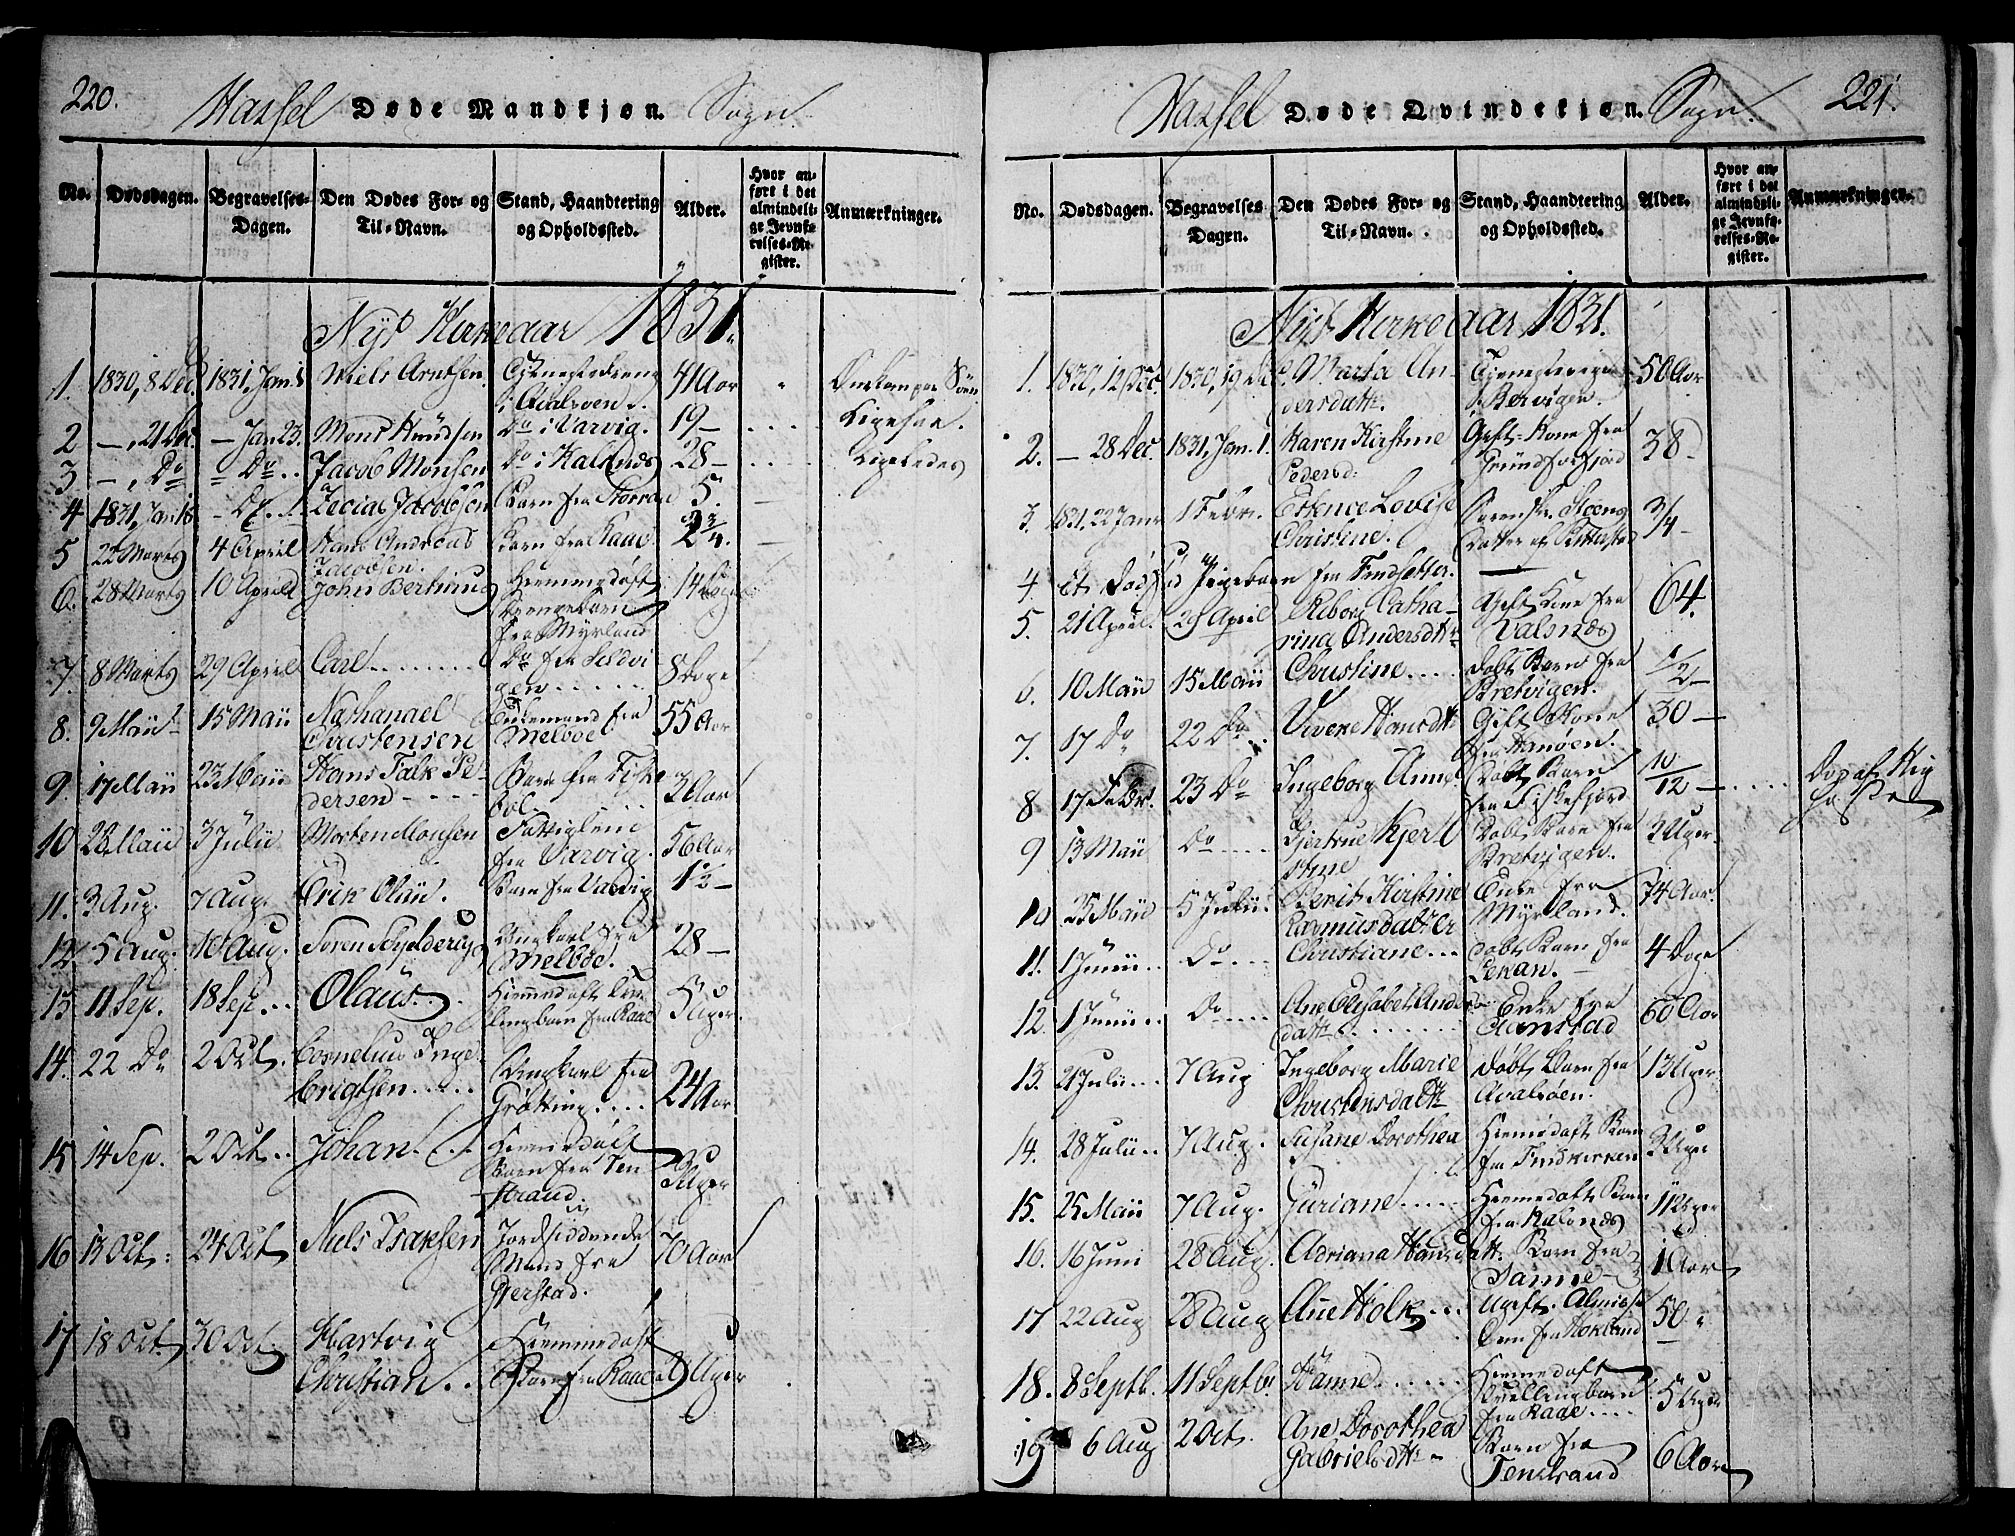 220.
Hassel Døde Mandkjøn. Sogn.
No. Dødsdagen. Begravelses-Dagen. Den Dødes For- og Til-Navn. Stand, Haandtering og Opholdssted. Alder. Hvor anført i det almindelige Jevnførelses-Register. Anmærkninger.
Nyt Kirkeaar 1831.
1. 1830, 8 Dec. 1831, Jan. Niels Arntsen. Tjenestedreng i 41 Aar
2 —, 21 Dec. — Jan 23. Mons Knudsen Do i Varvig. 19 — Ligesaa.
3 —, Do = Do Jacob Monsen Do i Kalsnæs 28 — Ligeledes
4 1831, Jan 18 – Do Jacobsen Barn fra 5.
5 22 Marts 4 April Hans Andreas Jacobsen. Barn fra 2 3/4.
6. 28 Marts 10 April John Berthius Hjemmedøbt Drengebarn fra Myrland 14 Dage
7. 8 Marts 29 April Carl Do fra 8 Dage
8. 9 Maii 15 Maii Nathanael Christensen Enkemand fra Melboe 55 Aar
9. 17 Maii 23 Maii Hans Falk Pedersen Barn fra Fiskebøl 3 Aar
10 28 Maii 3 Julii Morten Monsen Fattiglem fra Varvig. 56 Aar
11. 3 Aug. 7 Aug. Erik Olaii. Barn fra Valvig 1 1/2 —
12. 5 Aug. 10 Aug. Søren Schjelderup Ungkarl fra Melboe. 28 —
13 11 Sep. 18 Sep. Olaus. Hjemmedøbt Tvillingbarn fra Raae 5 Uger.
14. 22 Do 2 Oct. Cornelius Inge- brigtsen Ungkarl fra Grøtting 24 Aar
15 14 Sep. 2 Oct. Johan. Hjemmedøbt Barn fra Tenstrand. Uger
16 13 Oct. 24 Oct. Niels Isaksen Jordsiddende Mand fra Gjerstad. 70 Aar
17 18 Oct. 30 Oct. Hartvig Christian Hjemmedøbt Barn fra Raae Uger
221.
Hassel Døde Qvindekjøn. Sogn.
No. Dødsdagen. Begravelses Dagen. Den Dødes For- og Til-Navn. Stand, Haandtering og Opholdssted. Alder. Hvor anført i det almindelige Jevnførelses-Register. Anmærkninger.
Nyt Kirkeaar 1831.
1. 1830, 12 Dec. 1830, 19 Dec. Marta Andersdatt. Tjenestepige 50 Aar
2. — 28 Dec. 1831, Jan. 1. Karen Kirstine Pedersd: Gift Kone fra Grundforfjord 38 —
3. 1831, 22 Janr 1 Febr. Lovise Christine. 3/4 —
4. et dødfød Pigebarn fra Findsætter. —
5. 21 April. 29 April Catharina Andersdttr Gift Kone fra Valsnæs 64.
6. 10 Maii 15 Maii Christine Døbt Barn fra Bretvigen. 1/2 —
7. 17 Do 22 Do Viveke Hansdtt Gift Kone fra Hanøen. 30 —
8 17 Febr. 23 Do Ingeborg Anne Døbt Barn fra Fiskefjord 10/12 —
9 13 Maii Do Gjertrue Kjerstine Døbt Barn fra Bretvigen. 3 Uger
10 25 Maii 5 Julii Berit Kirstine Rasmusdatter Enke fra Myrland. 74 Aar
11. 1 Junii Do Christiane Døbt Barn fra 4 Dage
12. 1 Junii Do Ane Elisabet Andersdatt. Enke fra Aanstad 60 Aar
13. 21 Julii 7 Aug Ingeborg Marie Christensdatt Døbt Barn fra Qvalsøen. 13 Uger
14. 28 Julii 7 Aug. Susane Dorothea Hjemmedøbt Barn fra Findkirken 3 Uger
15. 25 Maii 7 Aug. Juriane Hjemmedøbt Barn fra Kalsnæs 11 Uger
16. 16 Juni 28 Aug. Adriana Hansdatt. Barn fra Sanne 1 Aar
17 22 Aug 28 Aug Ane Holk Ugift Almisselem fra Stokland 50
18. 8 Septb. 11 Septbr. Hanne Hjemmedøbt Tvillingbarn fra Raae 5 Uger
19 6 Aug 2 Oct. Ane Dorothea Gabrielsdtt Barn fra Tenstrand 6 Aar